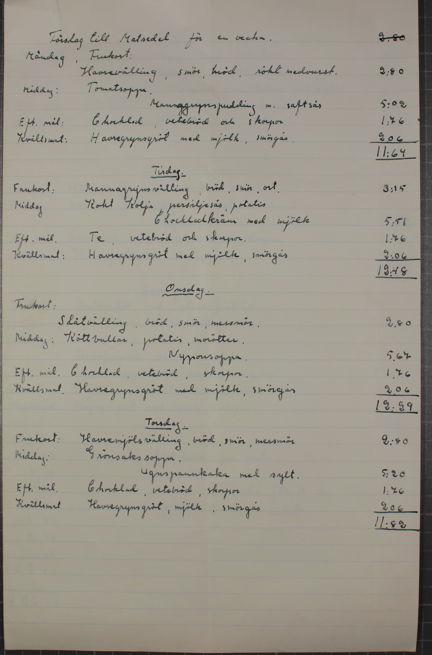 Förslag till Matsedel för en vecka. 2.80
Måndag, Frukost:
Havrevälling, smör, bröd, rökt medvurst. 2:80
Middag: Tomatsoppa.
Mannagrynspudding m. saftsås 5:02
Eft. mid: Choklad, vetebröd och skorpor 1,76
Kvällsmat: Havregrynsgröt med mjölk, smörgås 2.06
11:64
Tisdag.
Frukost: Mannagrynsvälling, bröd, smör, ost. 3:15
Middag Kokt Kolja, persiljesås, potatis
Chokladkräm med mjölk 5,51
Eft. mid. Te, vetebröd och skorpor. 1.76
Kvällsmat: Havregrynsgröt med mjölk, smörgås 2:06
12:48
Onsdag.
Frukost:
Slätvälling, bröd, smör, messmör. 2,80
Middag: Köttbullar, potatis, morötter.
Nyponsoppa 5,67
Eft. mid. Choklad, vetebröd, skorpor. 1.76
Kvällsmat. Havregrynsgröt med mjölk, smörgås 2.06
12:29
Torsdag.
Frukost: Havremjölsvälling, bröd, smör, messmör 2:80
Middag: Grönsakssoppa.
Ugnspannkaka med sylt. 5:20
Eft. mid. Choklad, vetebröd, skorpor 1:76
Kvällsmat Havregrynsgröt, mjölk, smörgås 2.06
11:82